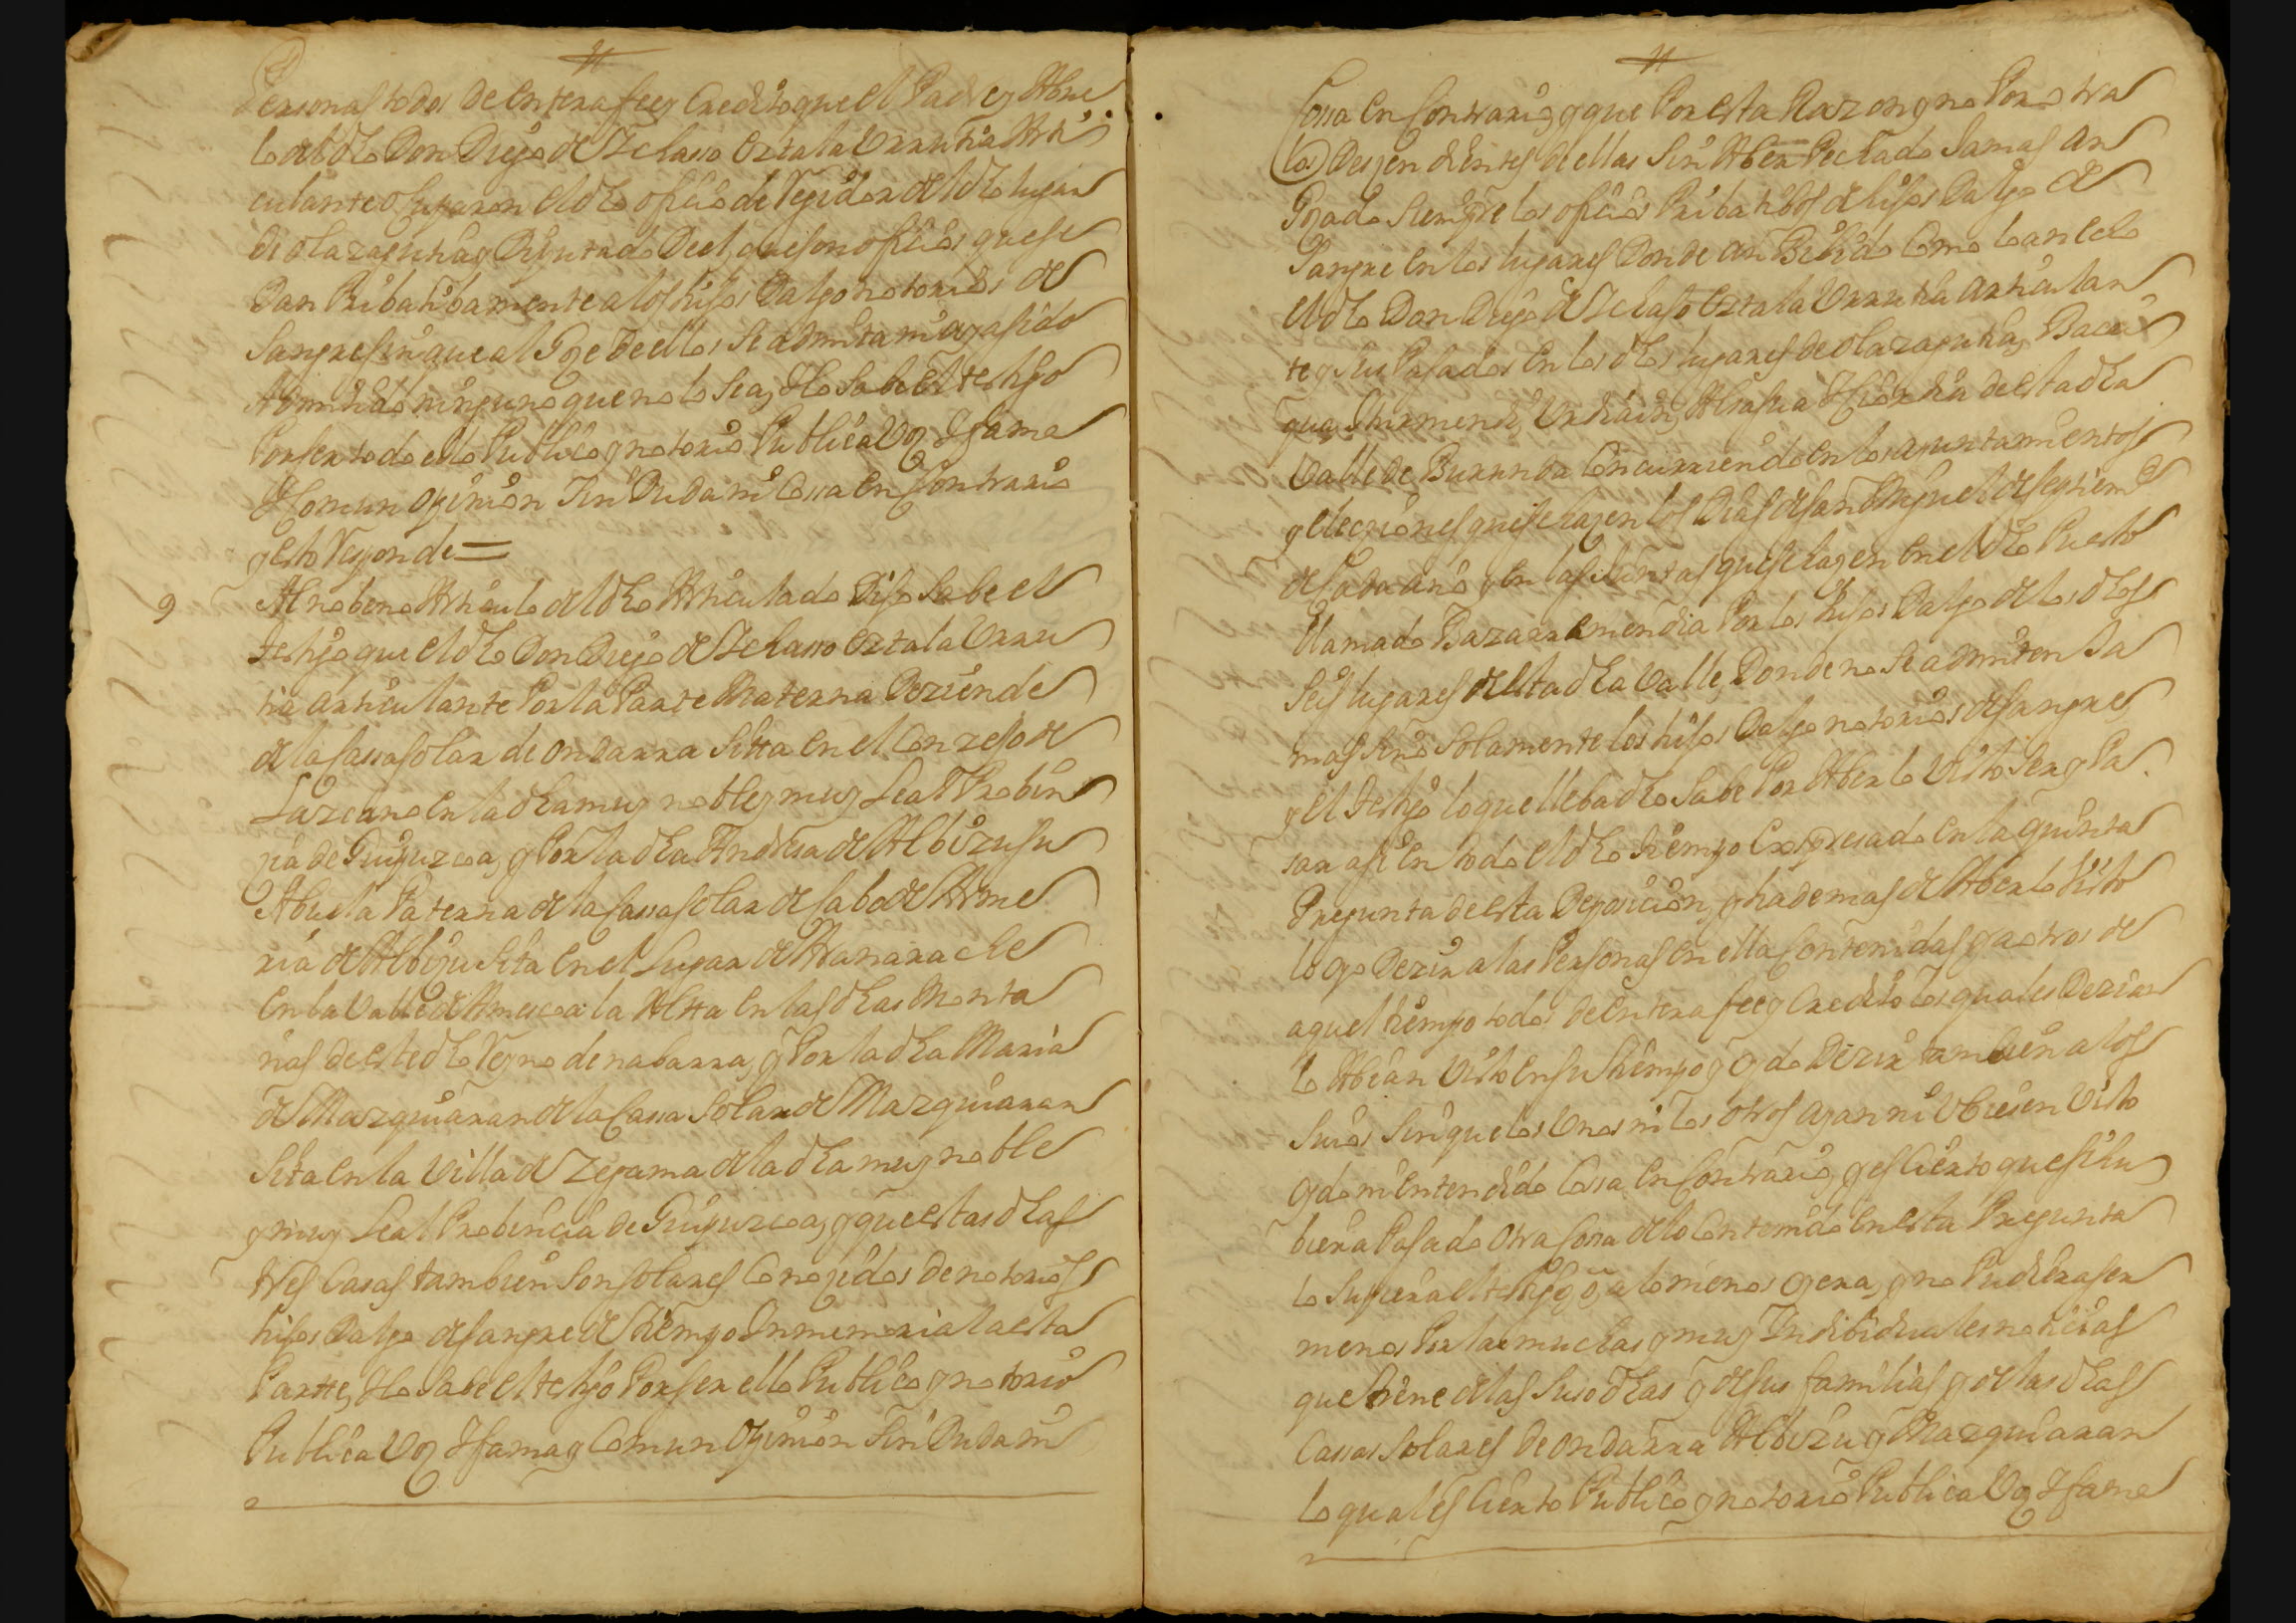 Personas todos de entera fee y Credito que el Padre y Abue
lo del dho Don Diego de Ychasso Oztala Urrutia Arti
culante ocuparon el dho oficio de Regidor del dho lugar
de olazagutia y Diputado de el, que son oficios que se
dan Pribatibamente a los hijos Dalgo notorios de
Sangre sin que al Goze de ellos se admita ni aya sido
Admitido ninguno que no lo sea, Ylo Sabe el testigo
Por ser todo ello Publico y notorio Publica Voz Y fama
Y Comun opinion Sin Duda ni Cossa en Contrario
y esto Responde =
9 Al nobeno Articulo del dho Articulado Dijo Sabe el
testigo que el dho Don Diego de Ychasso Oztala Urru
tia articulante Por la Parte Materna Deziende
de la Cassa solar de ondarra Sitta en el Conzejo de
Lazcano en la dha muy noble y muy Leal Probin
zia de Guipuzcoa, y Por la dha Andresa de Albizu su
Abuela Paterna de la Cassa solar de Cabo de Arme
ria de Albizu Sita en el Lugar de Aranarache
en la Valle de Amescoa la Alta en las dhas Monta
ñas de este dho Reyno de nabarra, y Por la dha Maria
de Mazquiaran de la Cassa Solar de Mazquiaran
Sita en la Villa de Zegama de la dha muy noble
y muy Leal Probincia de Guipuzcoa, y que estas dhas
tres Casas tambien Son solares Conozidos de notorios
hijos Dalgo de sangre de tiempo Inmemorial a esta
Partte, Ylo Sabe el testigo Por ser ello Publico y notorio
Publica Voz Y fama y Comun Opinion Sin Duda ni
Cossa en Contrario, y que Por esta Razon y no Por otra
los Deszendientes de ellas Sin Aber Pechado Jamas an
Gozado Siempre los oficios Pribatibos de hijos Dalgo de
Sangre en los lugares Donde an Bibido Como lo an echo
el dho Don Diego de Ychaso Oztala Urrutia articulan
te y sus Pasados en los dhos lugares de olazagutia, Bacai
qua, Yturmendi, Urdiain, Alsasua Y Ciordia de esta dha
Valle de Burunda Concurriendo en los ayuntamientos
y elecziones que se hazen los Dias de san Miguel de septiembre
de cada año y en las Juntas que se hazen en el dho Puesto
llamado Bazarramendia Por los hijos Dalgo de los dhos
Seis lugares de esta dha Valle, Donde no Se admiten Ja
mas sino Solamente los hijos Dalgo notorios de sangre,
y el testigo lo que lleba dho Sabe Por Aberlo Visto Ser y Pa
sar asi en todo el dho tiempo expresado en la quinta
Pregunta de esta Deposicion, y hademas de Aberlo Visto
lo oyo Dezir a las Personas en ella Contenidas y a otros de
aquel tiempo todos de entera fee y Credito los quales Dezian
lo Abian Visto en su tiempo y oydo Dezir tambien a los
Suios Sin que los Unos ni los otros ayan ni Ubiesen Visto
oydo ni entendido Cosa en Contrario, y es Cierto que si hu
biera Pasado otra Cossa de lo Contenido en esta Pregunta
lo Supiera el testigo, o, a lo menos oyera, y no Pudiera ser
menos Por las muchas y muy Indibiduales noticias
que tiene de las Suso dhas y de sus familias y de las dhas
Cassas Solares de ondarra Albizu y Mazquiaran
lo qual es Cierto Publico y notorio Publica Voz Y fama